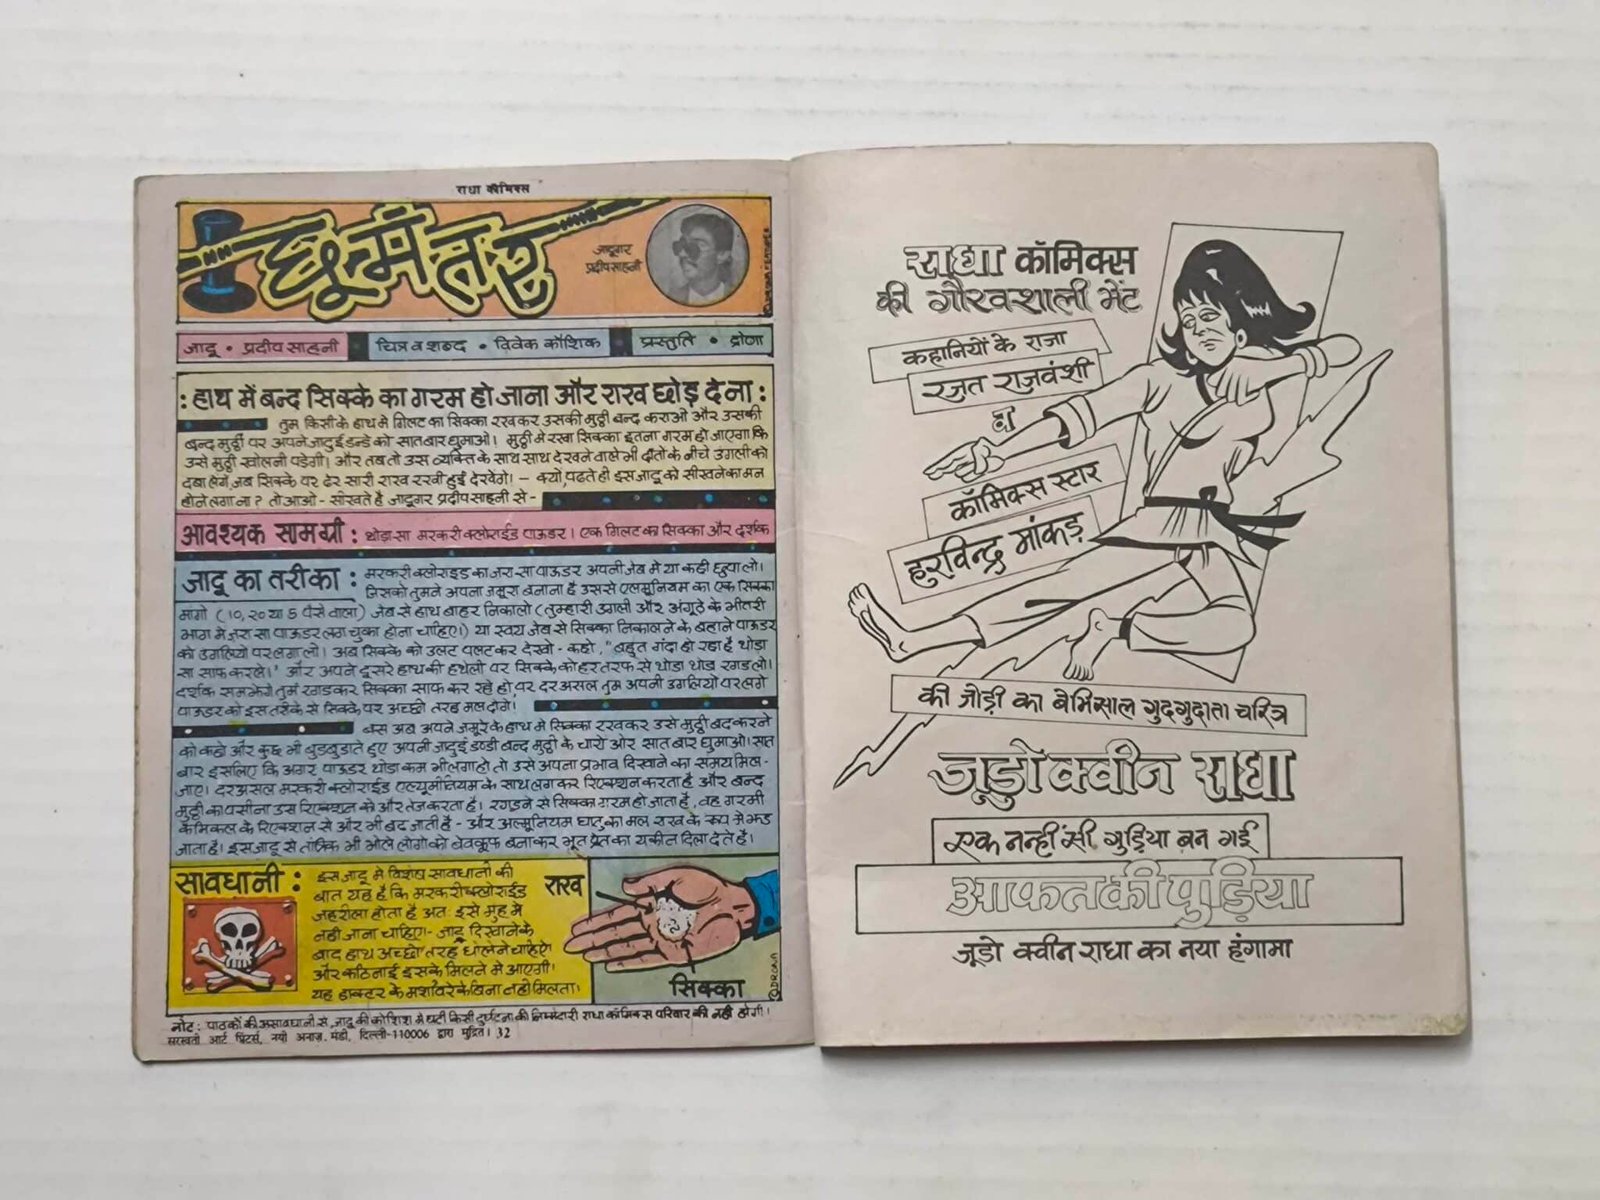 राधा कॉमिक्स
छूमंतर
जादूगर
प्रदीप साहनी
© DRONA FEATURES
जादू • प्रदीप साहनी
चित्र व शब्द • विवेक कौशिक
प्रस्तुति • द्रोणा
: हाथ में बन्द सिक्के का गरम हो जाना और राख छोड़ देना :
तुम किसी के हाथ मे गिलट का सिक्का रखकर उसकी मुठ्ठी बन्द कराओ और उसकी
बन्द मुठ्ठी पर अपने जादुई डन्डे को सात बार घुमाओ। मुठ्ठी मे रखा सिक्का इतना गरम हो जाएगा कि
उसे मुठ्ठी खोलनी पड़ेगी। और तब तो उस व्यक्ति के साथ साथ देखने वाले भी दाँतो के नीचे उंगली को
दबा लेगें, जब सिक्के पर ढेर सारी राख रखी हुई देखेंगे। - क्यों, पढते ही इस जादू को सीखने का मन
होने लगा ना ? तो आओ - सीखते है जादूगर प्रदीप साहनी से -
आवश्यक सामग्री : थोडा सा मरकरी क्लोराईड पाऊडर। एक गिलट का सिक्का और दर्शक
जादू का तरीका : मरकरी क्लोराइड का जरा सा पाऊडर अपनी जेब मे या कही छुपा लो।
जिसको तुमने अपना जमूरा बनाना है उससे एलमुनियम का एक सिक्का
मांगो (10, 20 या 5 पैसे वाला) जेब से हाथ बाहर निकालो (तुम्हारी उंगली और अंगूठे के भीतरी
भाग मे जरा सा पाऊडर लग चुका होना चाहिए।) या स्वयं जेब से सिक्का निकालने के बहाने पाऊडर
को उंगलियो पर लगा लो। अब सिक्के को उलट पलट कर देखो - कहो, "बहुत गंदा हो रहा है थोडा
सा साफ कर लें।" और अपने दूसरे हाथ की हथेली पर सिक्के को हर तरफ से थोडा थोड रगड लो।
दर्शक समझेगें तुम रगडकर सिक्का साफ कर रहे हो, पर दरअसल तुम अपनी उंगलियो पर लगे
पाऊडर को इस तरीके से सिक्के पर अच्छी तरह मल दोगे।
बस अब अपने जमूरे के हाथ मे सिक्का रखकर उसे मुठ्ठी बंद करने
को कहो और कुछ भी बुडबुडाते हुए अपनी जादुई डण्डी बन्द मुठ्ठी के चारो ओर सात बार घुमाओ। सात
बार इसलिए कि अगर पाऊडर थोडा कम भी लगा हो तो उसे अपना प्रभाव दिखाने का समय मिल-
जाए। दरअसल मरकरी क्लोराईड एल्यूमीनियम के साथ लगकर रिएक्शन करता है और बन्द
मुठ्ठी का पसीना उस रिएक्शन को और तेज करता है। रगडने से सिक्का गरम हो जाता है, वह गरमी
कैमिकल के रिएक्शन से और भी बढ जाती है - और अल्मुनियम धातु का मल राख के रूप मे झड
जाता है। इस जादू से तांत्रिक भी भोले लोगो को बेवकूफ बनाकर भूत प्रेत का यकीन दिला देते है।
सावधानी : इस जादू मे विशेष सावधानी की
बात यह है कि मरकरी क्लोराईड
जहरीला होता है अतः इसे मुंह मे
नही जाना चाहिए- जादू दिखाने के
बाद हाथ अच्छी तरह धो लेने चाहिऐ
और कठिनाई इसके मिलने मे आएगी।
यह डाक्टर के मशविरे के बिना नही मिलता।
राख
सिक्का
© DRONA
नोट : पाठकों की असावधानी से, जादू की कोशिश मे घटी किसी दुर्घटना की जिम्मेदारी राधा कॉमिक्स परिवार की नही होगी।
सरस्वती आर्ट प्रिंटर्स, नयी अनाज मंडी, दिल्ली-110006 द्वारा मुद्रित। 32
राधा कॉमिक्स
की गौरवशाली भेंट
कहानियों के राजा
रजत राजवंशी
व
कॉमिक्स स्टार
हुरविन्द्र मांकड़
की जोड़ी का बेमिसाल गुदगुदाता चरित्र
जूडो क्वीन राधा
एक नन्हीं सी गुड़िया बन गई
आफत की पुड़िया
जूडो क्वीन राधा का नया हंगामा